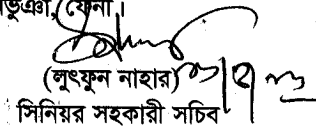 ভূঞা, ফেনী।
(লুৎফুন নাহার)
সিনিয়র সহকারী সচিব